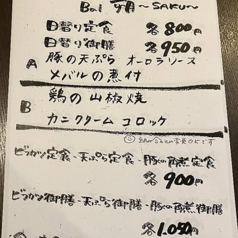 Bal 朔 〜SAKU〜
日替り定食 各800円
日替り御膳 各950円
A 豚の天ぷら オーロラソース
メバルの煮付
B 鶏の山椒焼
カニクリームコロッケ
ビフカツ定食・天ぷら定食・豚の角煮定食
各900円
ビフカツ御膳・天ぷら御膳・豚の角煮御膳
各1,050円